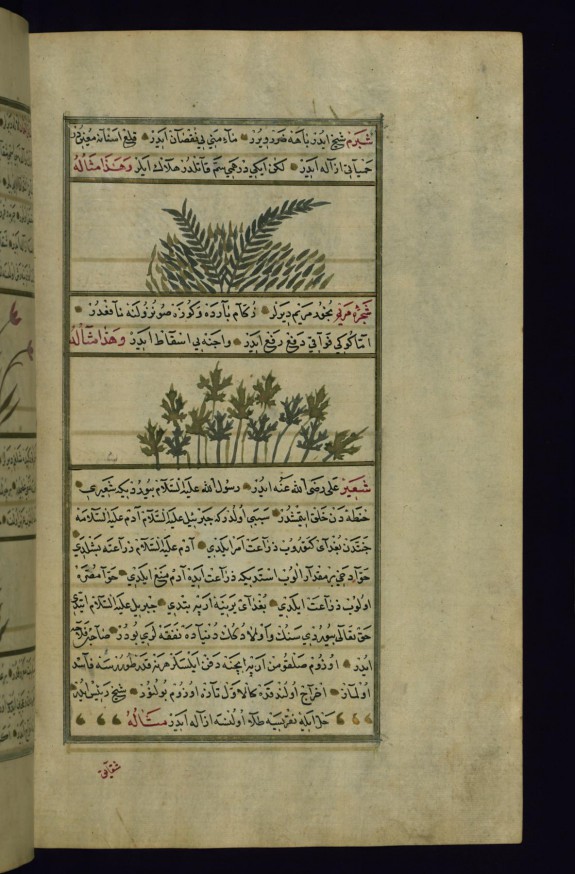 شبرم شیخ ایدر باهه ضرر ویرر ماء منی یی نقصان ایدر قلع اسنانه معیندر
حمیاتی ازاله ایدر لکن ایکی درهمی سم قاتلدر هلاك ایلر وهذا مثاله
شجره مریم بخور مریم دیرلر زکام بارده وکوزه صو نزولنه نافعدر
امّا کوکی فواقی دفع رفع ایدر واجنه یی اسقاط ایدر وهذا مثاله
شعیر علی رضی الله عنه ایدر رسول الله علیه السّلام بیوردیکه شعیری
حنطه دن خلق ایتمشدر سببی اولدرکه جبرئیل علیه السّلام آدم علیه السّلامه
جنّتدن بغدای کتوروب زراعت امر ایلدی آدم علیه السّلام زراعته بشلدی
حوّا دخی بر مقدار الوب استدیکه زراعت ایده آدم منع ایلدی حوّا مصرّه
اولوب زراعت ایلدی بغدای یرینه آرپه بتدی جبریل علیه السّلام ایتدی
حق تعالی بیوردی سنك واولادكك دنیاده نفقه لری بودر صاحب فلاحه
ایدر اوزوم صلقومن آرپه ایچنه دفن ایلسلر هر نه قدر طوررسه فاسد
اولماز اخراج اولندقده کالاوّل تازه اوزوم بولنور شیخ رئیس ایدر
خل ایله نقریسه طلا اولنسه ازاله ایدر مثاله
شقایق